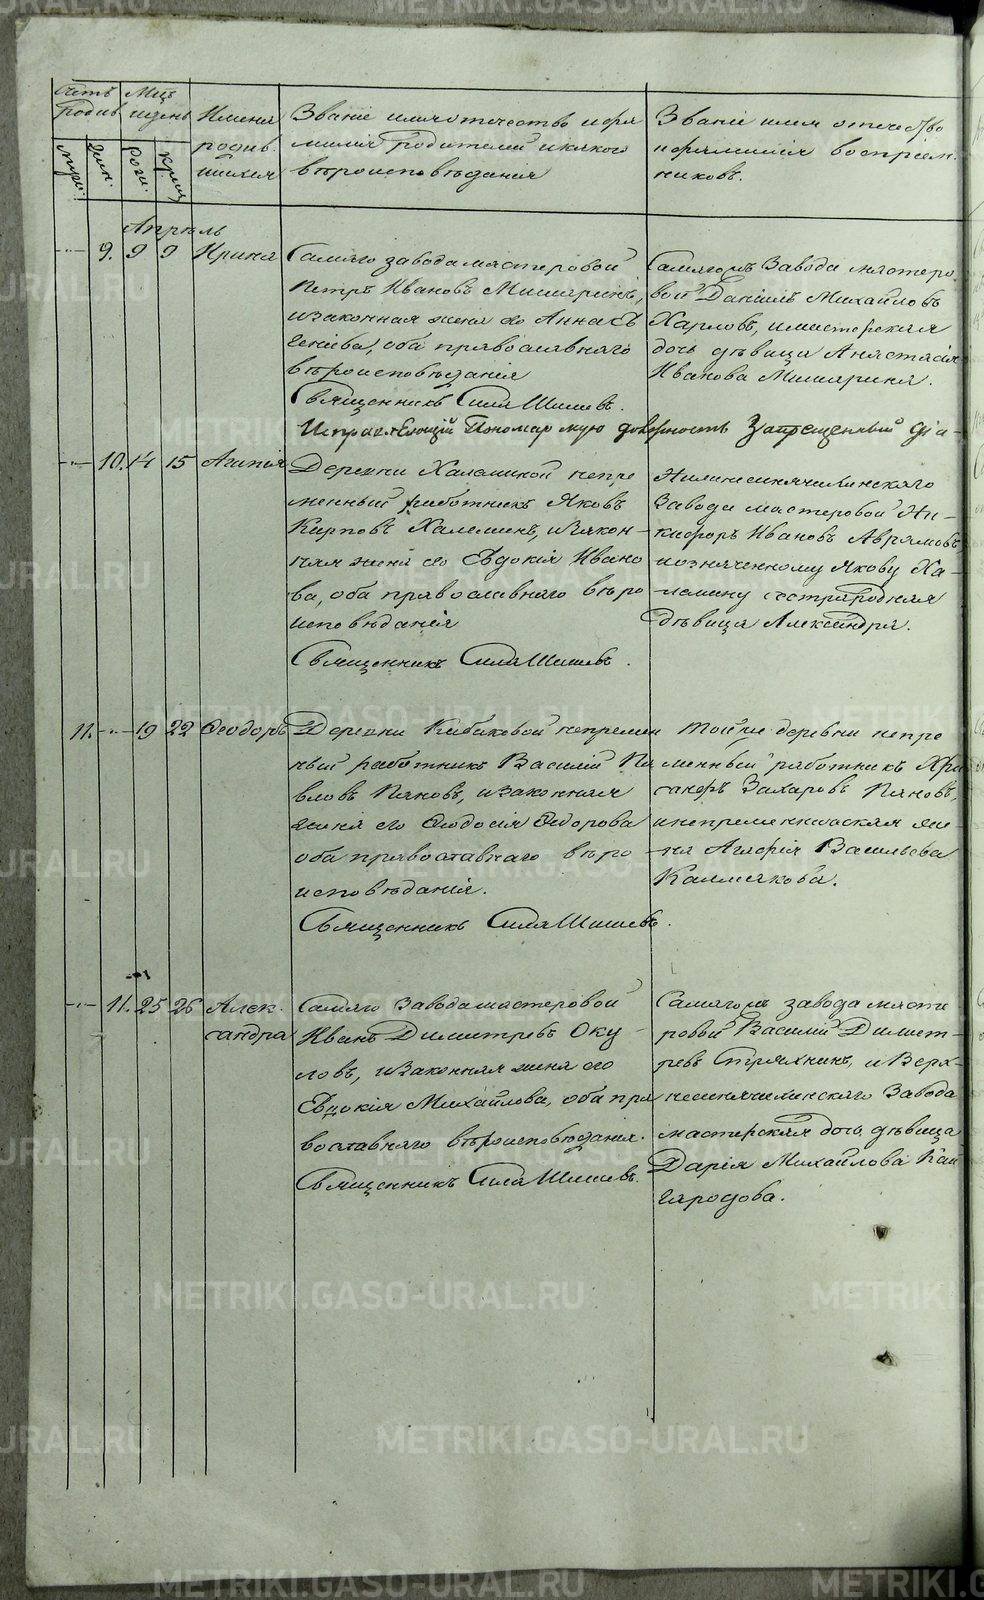 METRIKI.GASO-URAL.RU
Счетъ родив.
Мцъ и день
Имена родив шихся
Званіе имя отечество и фа
милія родителей и какого
вѣроисповѣданія
Званіе имя отечество
и фамилія воспріем
никовъ.
муж.
жен.
рож.
крещ
Апрѣль
9. 9 9 Ирина
Самаго завода мастеровой
Петръ Ивановъ Мишаринъ,
и законная жена его Анна Ев
геніева, оба православнаго
вѣроисповѣданія
Священникъ Сила Шишевъ.
Самагожъ Завода мастеро
вой Даніилъ Михайловъ
Харловъ, и мастерская
дочь дѣвица Анастасія
Иванова Мишарина.
Исправляющій Пономарскую должность Запрещенный діа-
10. 14 15 Агапія
Деревни Халеминой непре
менный работникъ Яковъ
Карповъ Халеминъ, и закон-
ная жена его Евдокія Ивано
ва, оба православнаго вѣро
исповѣданія
Священникъ Сила Шишевъ.
Нижнесинячихинскаго
Завода мастеровой Ни-
кифоръ Ивановъ Аврамовъ
и означенному Якову Ха-
лемину сестра родная
дѣвица Александра.
11. 19 22 Ѳеодоръ
Деревни Кабаковой непремен
ный работникъ Василій Па
вловъ Пановъ, и законная
жена его Ѳеодосія Ѳедорова
оба православнаго вѣро
исповѣданія.
Священникъ Сила Шишевъ.
Той же деревни непре
менный работникъ
Захаровъ Пановъ,
и непременническая же
на Агафія Васильева
Калмакова.
11. 25 26 Алек-
сандра
Самаго Завода мастеровой
Иванъ Димитревъ Оку
ловъ, и законная жена его
Евдокія Михайлова, оба пра
вославнаго вѣроисповѣданія.
Священникъ Сила Шишевъ.
Самагожъ завода масте
ровой Василій Димит-
ревъ Стряхнинъ, и Верх-
несинячихинскаго Завода
мастерская дочь дѣвица
Дарія Михайлова Кай
гародова.